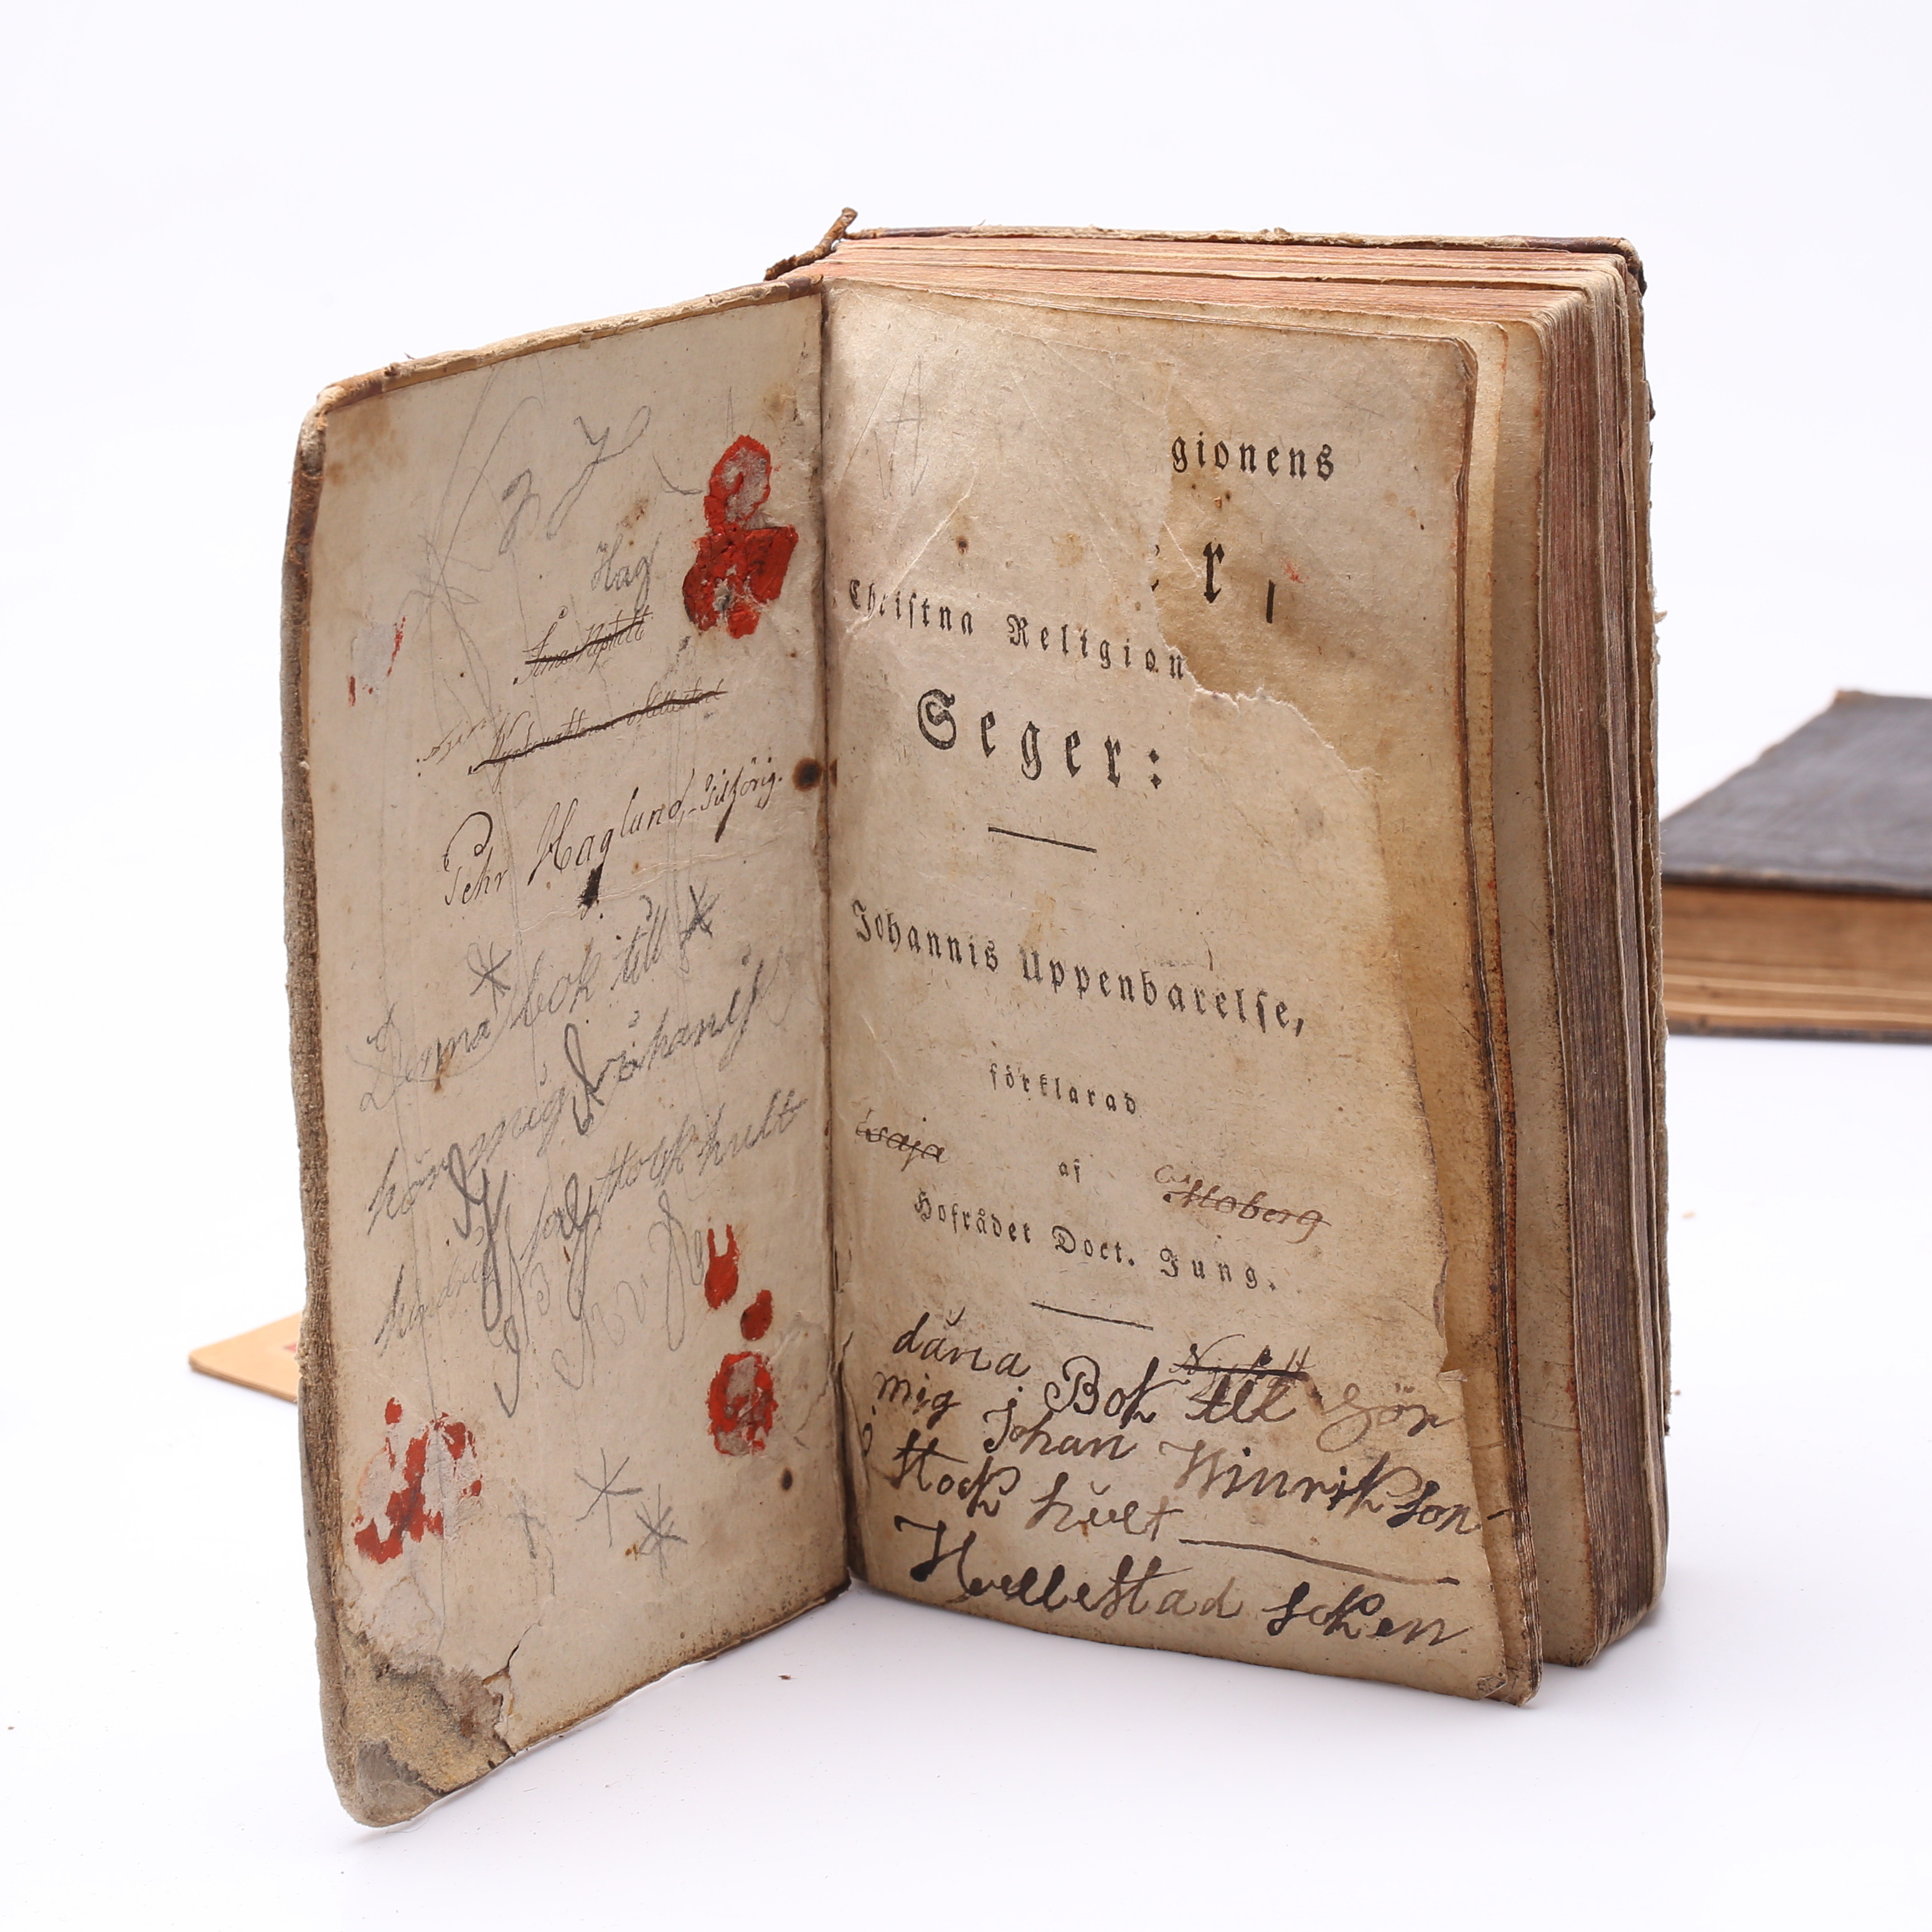 Hag
Pehr Haglund, Tilhörig.
Denna bok till
hör mig Johans
stockhult
gionens
r,
Christna Religion
Seger:
Johannis Uppenbarelse,
förklarad
esaja
af
Moberg
Hofrådet Doct. Jung.
däna Bok till hör
mig Johan Hinrikson
stock hult
Hellestad soken